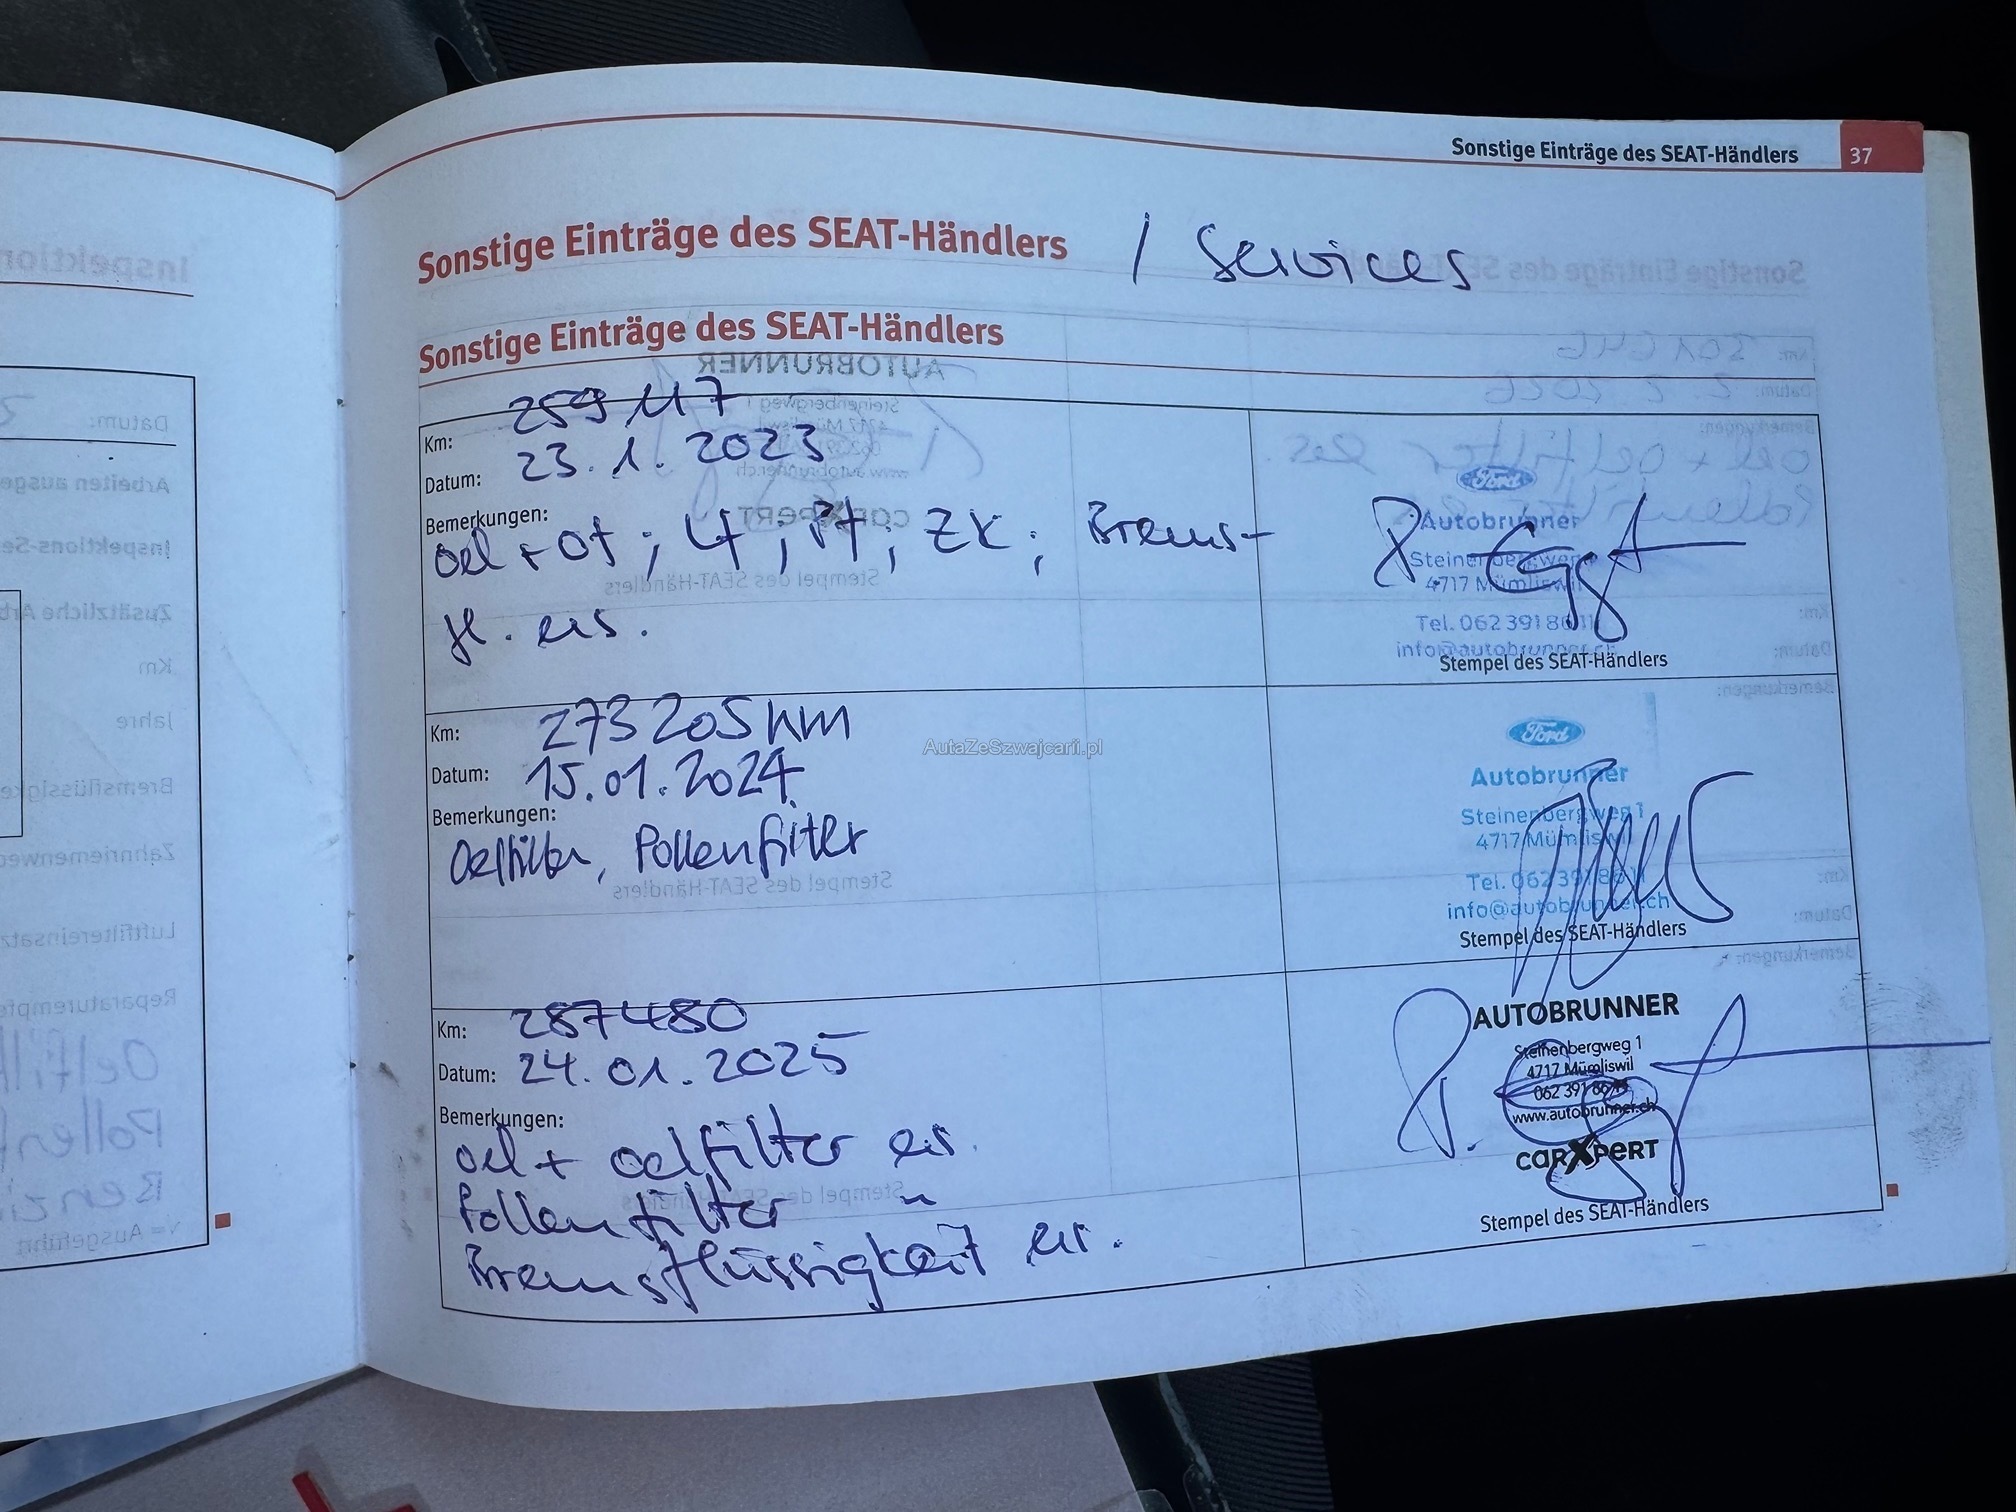 Sonstige Einträge des SEAT-Händlers 37
Sonstige Einträge des SEAT-Händlers / Services
Sonstige Einträge des SEAT-Händlers
Km: 259117
Datum: 23.1.2023
Bemerkungen:
Oel + Of; Lf; Pf; ZK; Brems-
fl. ers.
Ford
Autobrunner
Steinenbergweg
4717 Mümliswil
Tel. 062 391 86 11
info@autobrunner.ch
Stempel des SEAT-Händlers
Km: 273205km
Datum: 15.01.2024
Bemerkungen:
Oelfilter, Pollenfilter
AutaZeSzwajcarii.pl
Ford
Autobrunner
Steinenbergweg 1
4717 Mümliswil
Tel. 062 391 86 11
info@autobrunner.ch
Stempel des SEAT-Händlers
Km: 287480
Datum: 24.01.2025
Bemerkungen:
Oel + Oelfilter ers.
Pollenfilter "
Bremsflüssigkeit ers.
AUTOBRUNNER
Steinenbergweg 1
4717 Mümliswil
062 391 86 11
www.autobrunner.ch
carXpert
Stempel des SEAT-Händlers